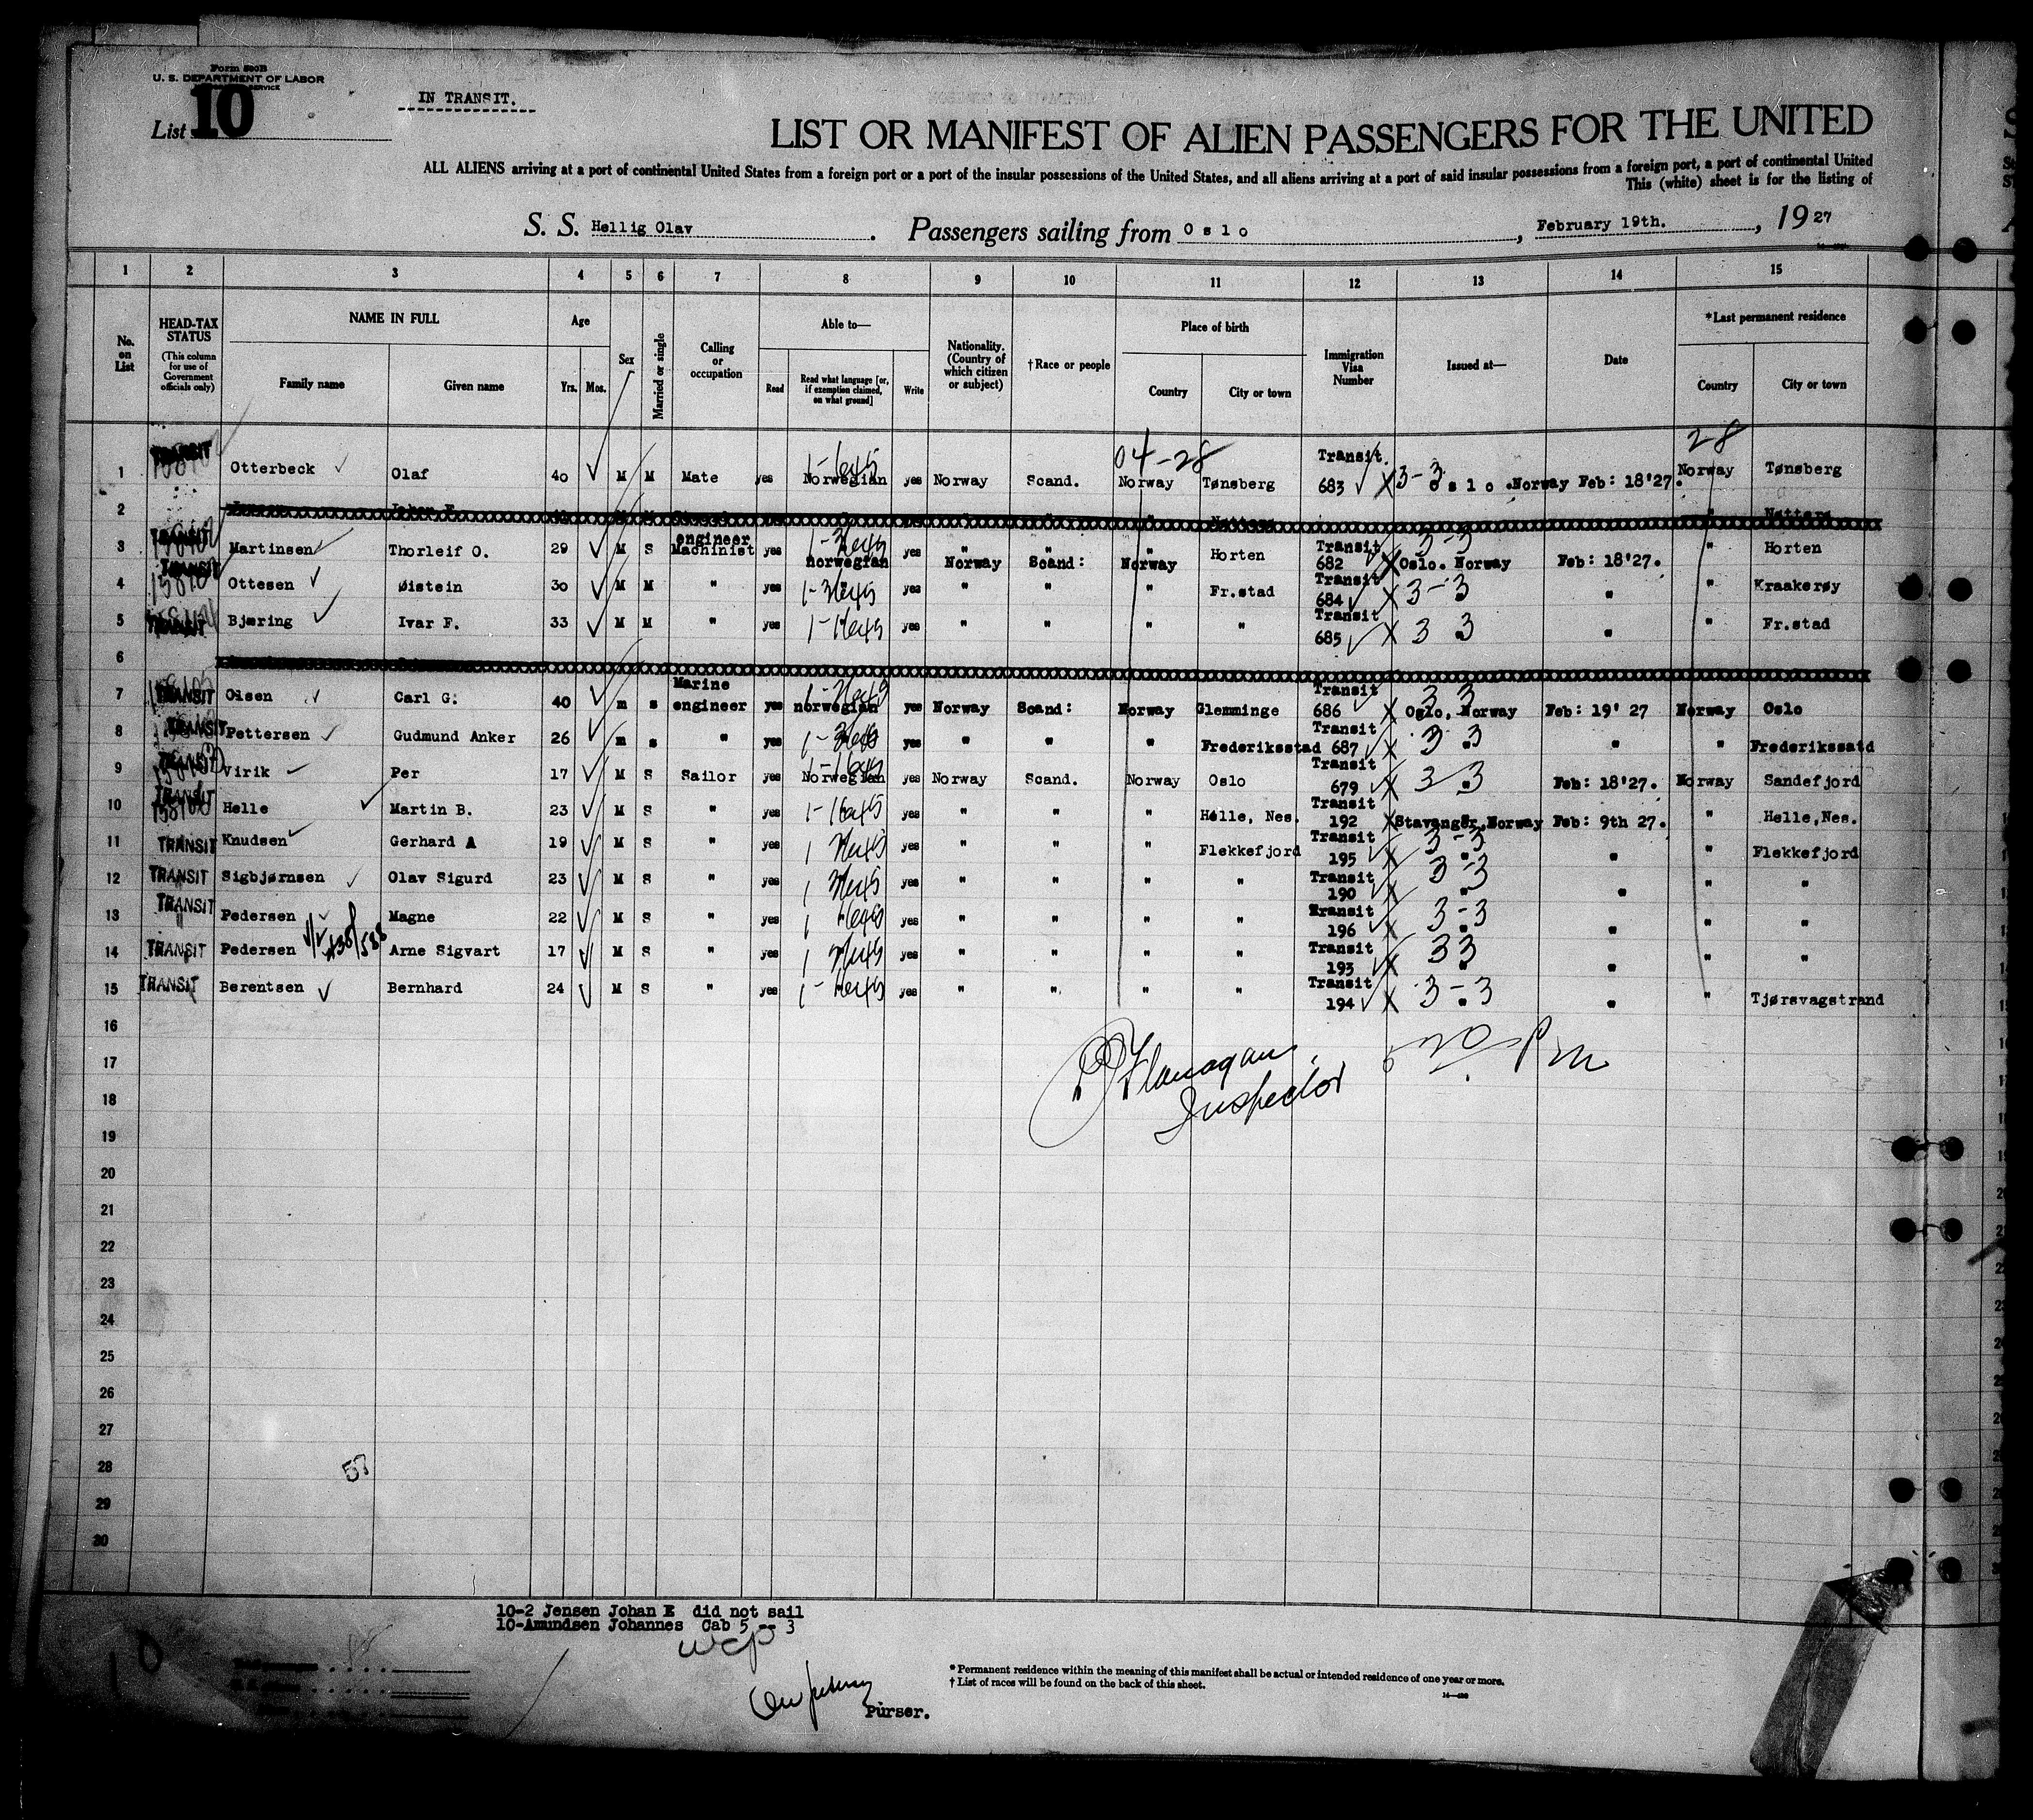 Form 500B
U. S. DEPARTMENT OF LABOR
SERVICE
List 10
IN TRANSIT.
LIST OR MANIFEST OF ALIEN PASSENGERS FOR THE UNITED
ALL ALIENS arriving at a port of continental United States from a foreign port or a port of the insular possessions of the United States, and all aliens arriving at a port of said insular possessions from a foreign port, a port of continental United
This (white) sheet is for the listing of
S. S. Hellig Olav. Passengers sailing from Oslo, February 19th., 1927
1 2 3 4 5 6 7 8 9 10 11 12 13 14 15
No. on List
HEAD-TAX STATUS (This column for use of Government officials only)
NAME IN FULL Family name Given name
Age Yrs. Mos.
Sex
Married or single
Calling or occupation
Able to— Read Read what language [or, if exemption claimed, on what ground] Write
Nationality. (Country of which citizen or subject)
†Race or people
Place of birth Country City or town
Immigration Visa Number
Issued at—
Date
*Last permanent residence Country City or town
04-28 28
1 TRANSIT Otterbeck Olaf 40 M M Mate yes Norwegian yes Norway Scand. Norway Tønsberg Transit. 683 3-3 Oslo. Norway Feb: 18'27. Norway Tønsberg
2
3 TRANSIT Martinsen Thorleif O. 29 M S engineer Machinist yes norwegian yes " Norway " Scand: " Norway Horten Transit 682 3-3 Oslo. Norway Feb: 18'27. " Horten
4 TRANSIT Ottesen Øistein 30 M M " yes yes " " " Fr.stad Transit 684 3-3 " " Kraakerøy
5 TRANSIT Bjæring Ivar F. 33 M M " yes yes " " " " Transit 685 3 3 " " " Fr.stad
6
7 TRANSIT Olsen Carl G. 40 m s Marine engineer yes norwegian yes Norway Scand: Norway Glemminge Transit 686 3 3 Oslo, Norway Feb: 19' 27 Norway Oslo
8 TRANSIT Pettersen Gudmund Anker 26 m s " yes yes " " " Frederiksstad Transit 687 3 3 " " " Frederikssatd
9 TRANSIT Virik Per 17 M S Sailor yes Norwegian yes Norway Scand. Norway Oslo Transit 679 3 3 " Feb: 18'27. Norway Sandefjord
10 TRANSIT Helle Martin B. 23 M S " yes yes " " " Hélle, Nes. Transit 192 Stavanger.Norway Feb: 9th 27. " Helle,Nes.
11 TRANSIT Knudsen Gerhard A 19 M S " yes yes " " " Flekkefjord Transit 195 3-3 " " " Flekkefjord
12 TRANSIT Sigbjørnsen Olav Sigurd 23 M S " yes yes " " " " Transit 190 3-3 " " " "
13 TRANSIT Pedersen Magne 22 M S " yes yes " " " " Transit 196 3-3 " " "
14 TRANSIT Pedersen Arne Sigvart 17 M S " yes yes " " " " Transit 193 33 " " " "
15 TRANSIT Berentsen Bernhard 24 M S " yes yes " " " " Transit 194 3-3 " " " Tjørsvagstrand
16
17
18
19
20
21
22
23
24
25
26
27
28
29
30
Flanagan
Inspector
57
10-2 Jensen Johan E did not sail
10-Amundsen Johannes Cab 5 -- 3
Purser.
* Permanent residence within the meaning of this manifest shall be actual or intended residence of one year or more.
† List of races will be found on the back of this sheet.